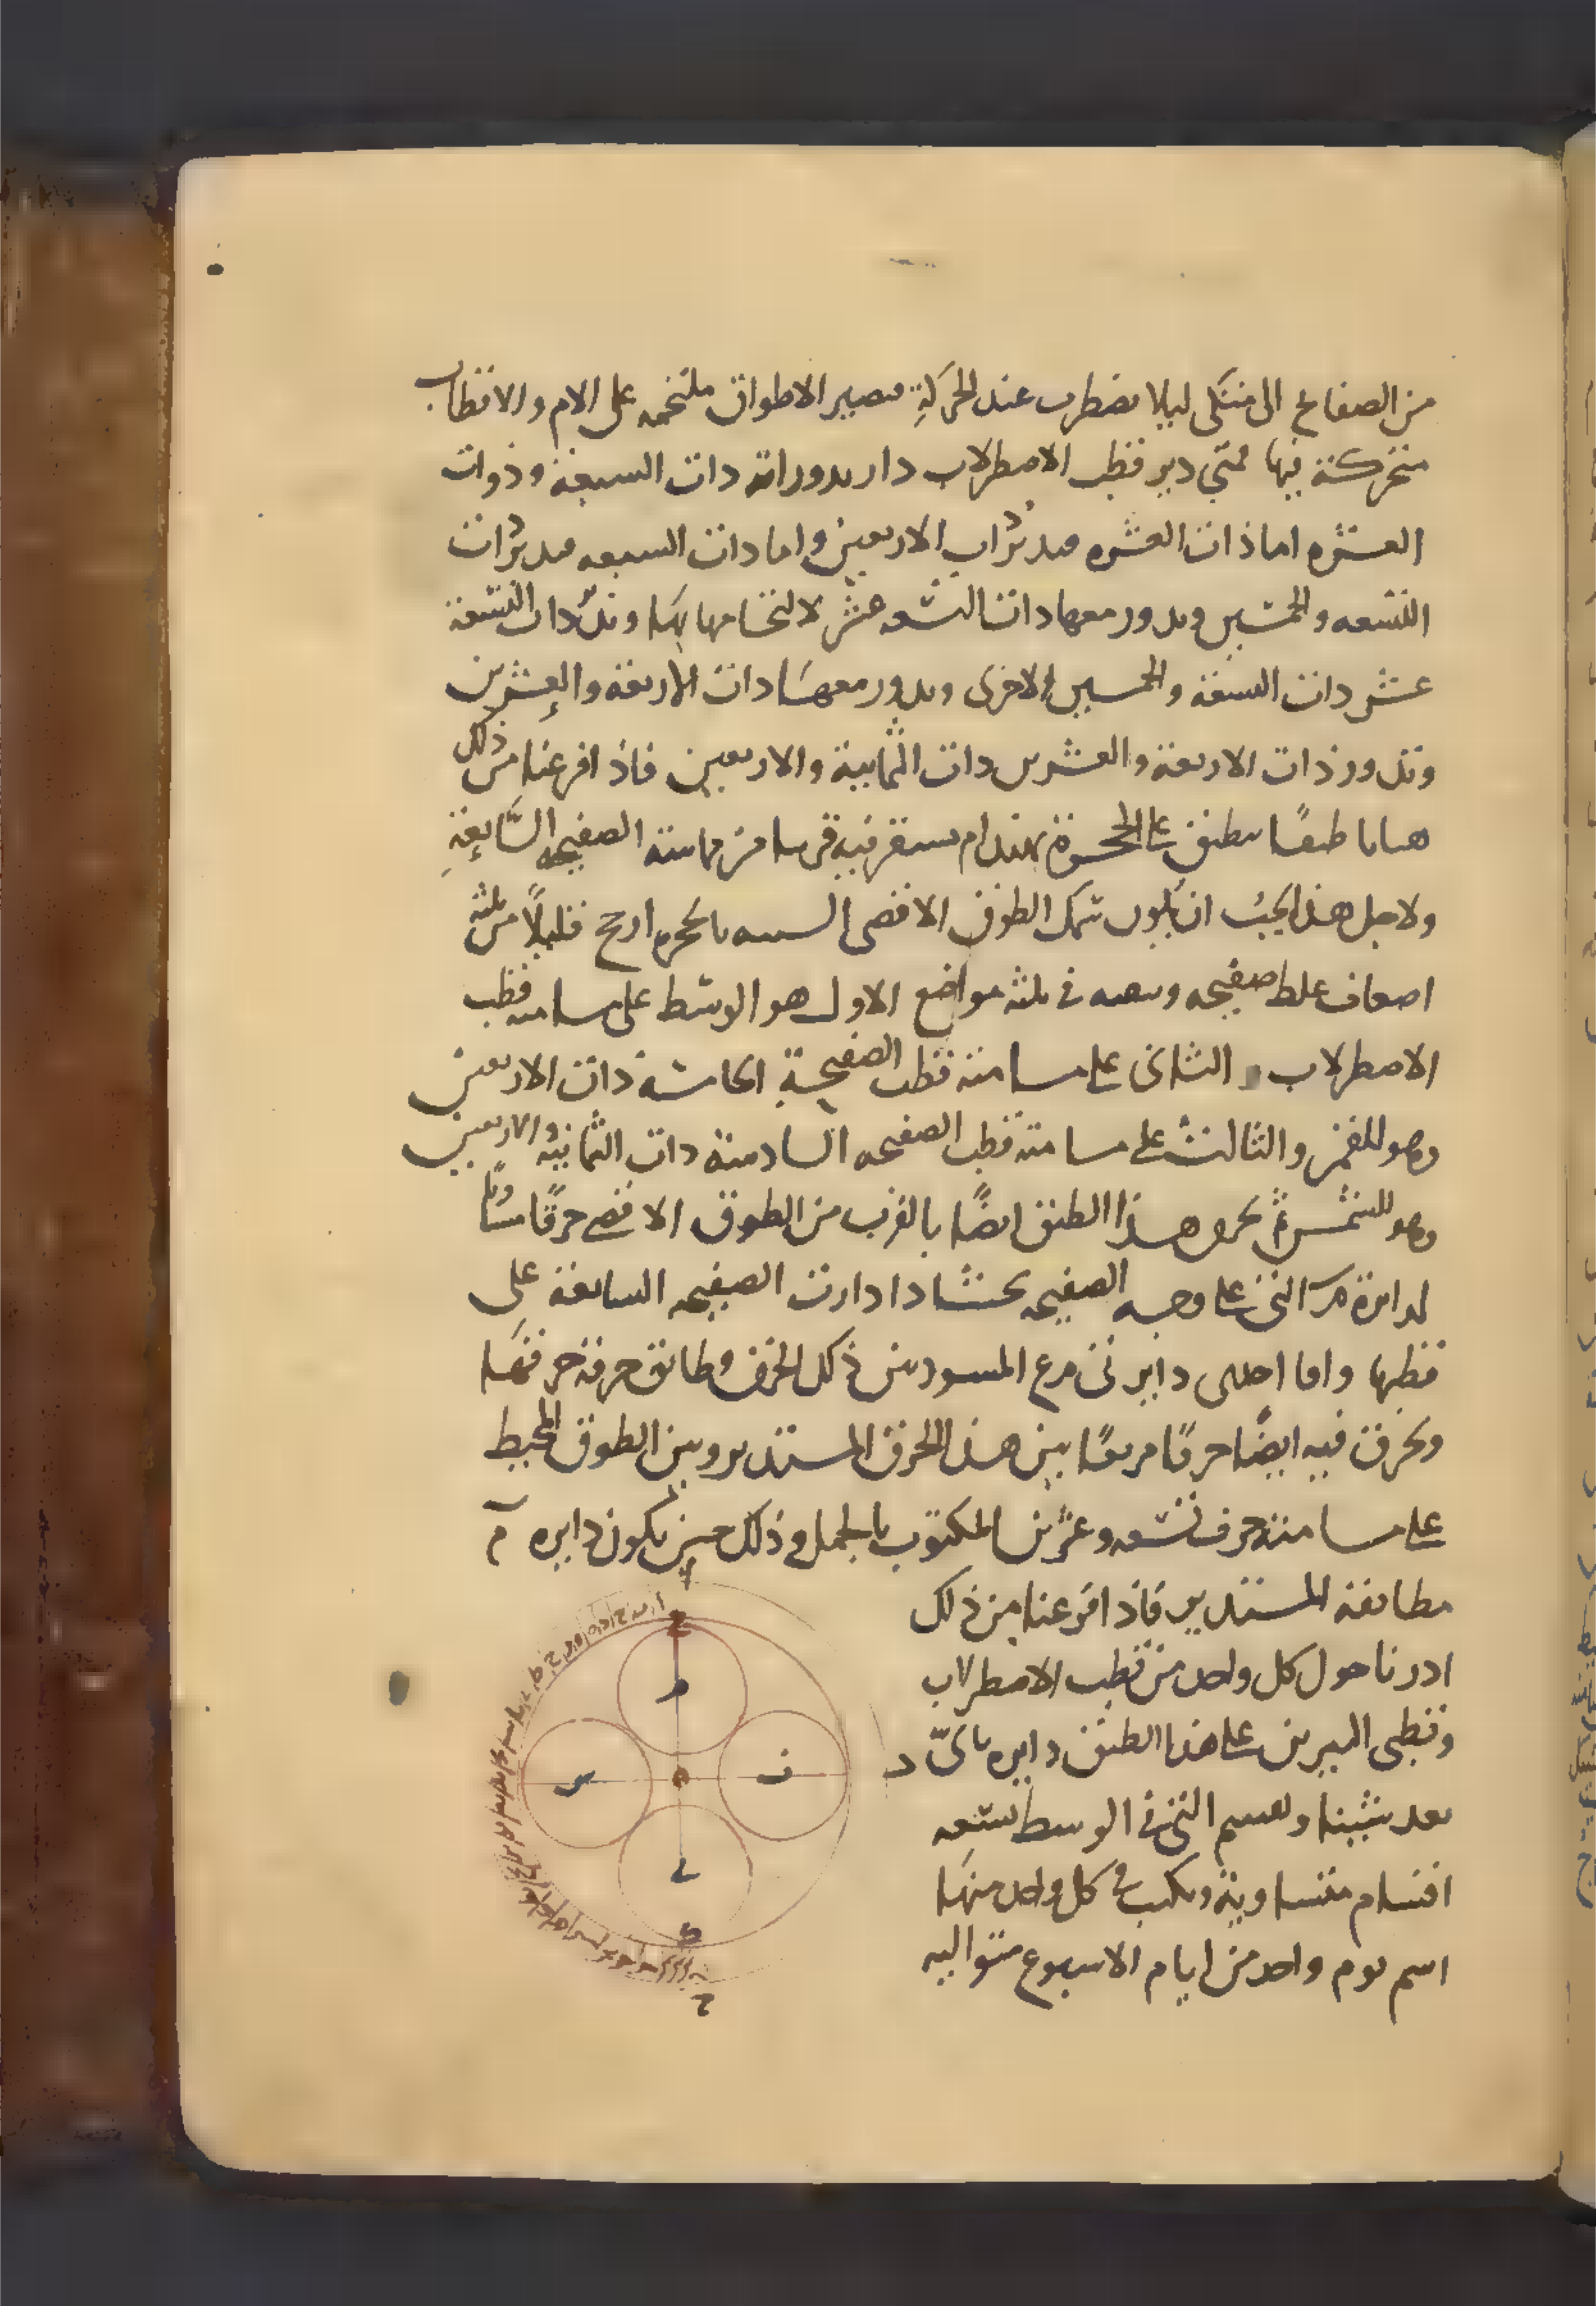 من الصفائح الى متكى ليلا تضطرب عند الحركة فتصير الاطواق ملتحمه على الام والاقطاب
متحركة فيها فمتى دير قطب الاصطرلاب دار بدورانه ذات السبعة وذوات
العشره اما ذات العشره فتدير ذات الاربعين واما ذات السبعه فتدير ذات
التسعه والخمسين ويدور معها ذات التسعه عشر لالتحامها بها وتدير ذات التسعة
عشر ذات التسعة والخمسين الاخرى ويدور معها ذات الاربعة والعشرين
وتدور ذات الاربعة والعشرين ذات الثمانية والاربعين فاذا فرغنا من ذلك
هيانا طبقا ينطبق على الحجرة بهندام يستقر فيه قريبا من مماسة الصفيحه السابعة
ولاجل هذا يجب ان يكون سمك الطوق الاقصى الشبيه بالحجره ارجح قليلا من ثلثه
اضعاف غلظ صفيحه ونثقبه في ثلثه مواضع الاول هو الوسط على مسامته قطب
الاصطرلاب والثانى على مسامتة قطب الصفيحة الخامسة ذات الاربعين
وهو للقمر والثالث على مسامتة قطب الصفيحه السادسة ذات الثمانية والاربعين
وهو للشمس ثم نخرق هذا الطبق ايضا بالقرب من الطوق الاقصى خرقا مساويا
لدائرة م التى على وجه الصفيحه بحيث اذا دارت الصفيحه السابعة على
قطبها وافا احدى دايرتى م ع المسودتين ذلك الخرق وطابق حرفه حرفها
ونخرق فيه ايضا خرقا مربعا بين هذا الخرق المستدير وبين الطوق المحيط
على مسامتة حرف تسعه وعشرين المكتوب بالجمل وذلك حين يكون دايره م
مطابقة المستدير فاذا فرغنا من ذلك
ادرنا حول كل واحد من قطب الاصطرلاب
وقطبى النيرين على هذا الطبق دايره باى
بعد شينا ونقسم التى فى الوسط سبعه
اقسام متساوية ونكتب فى كل واحد منها
اسم يوم واحد من ايام الاسبوع متواليه
ح